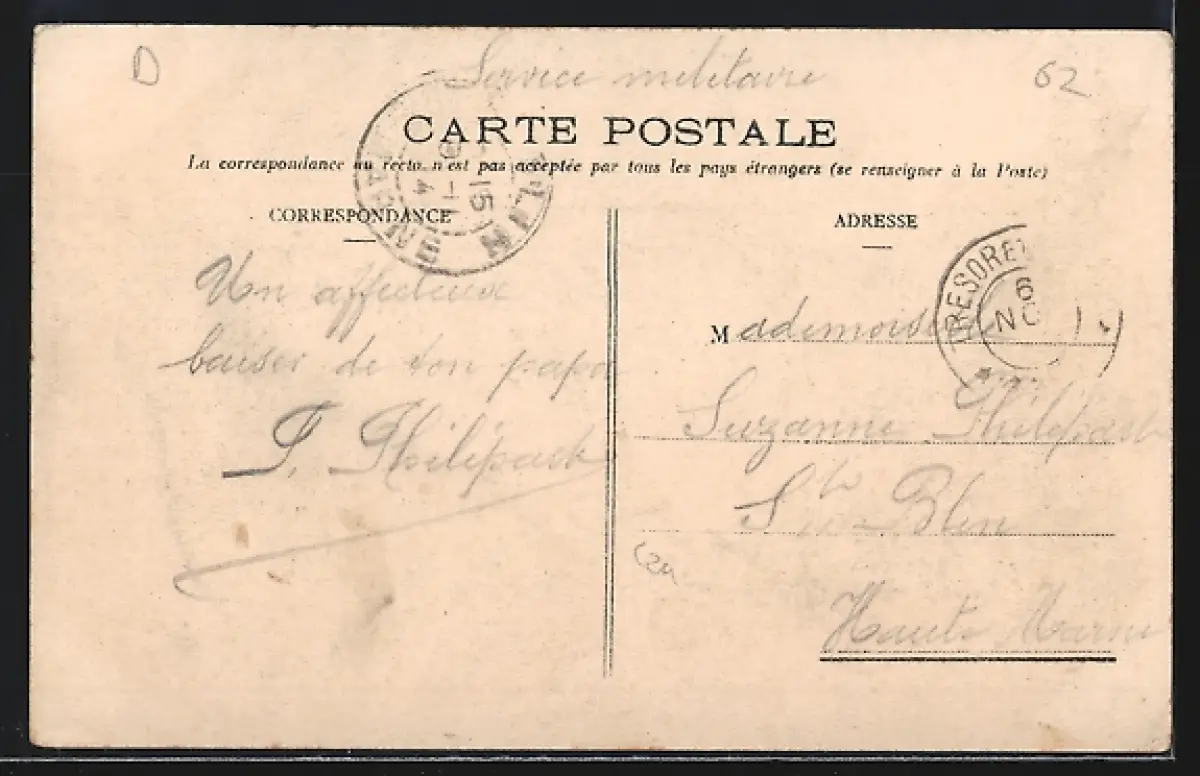 D
Service militaire
62
CARTE POSTALE
La correspondance au recto n'est pas acceptée par tous les pays étrangers (se renseigner à la Poste)
CORRESPONDANCE
Un affectueux
baiser de ton papa
P. Philipach
ADRESSE
TRESOR ET
6
NO
Mademoiselle
Suzanne Philipach
St Blin
Haute Marne